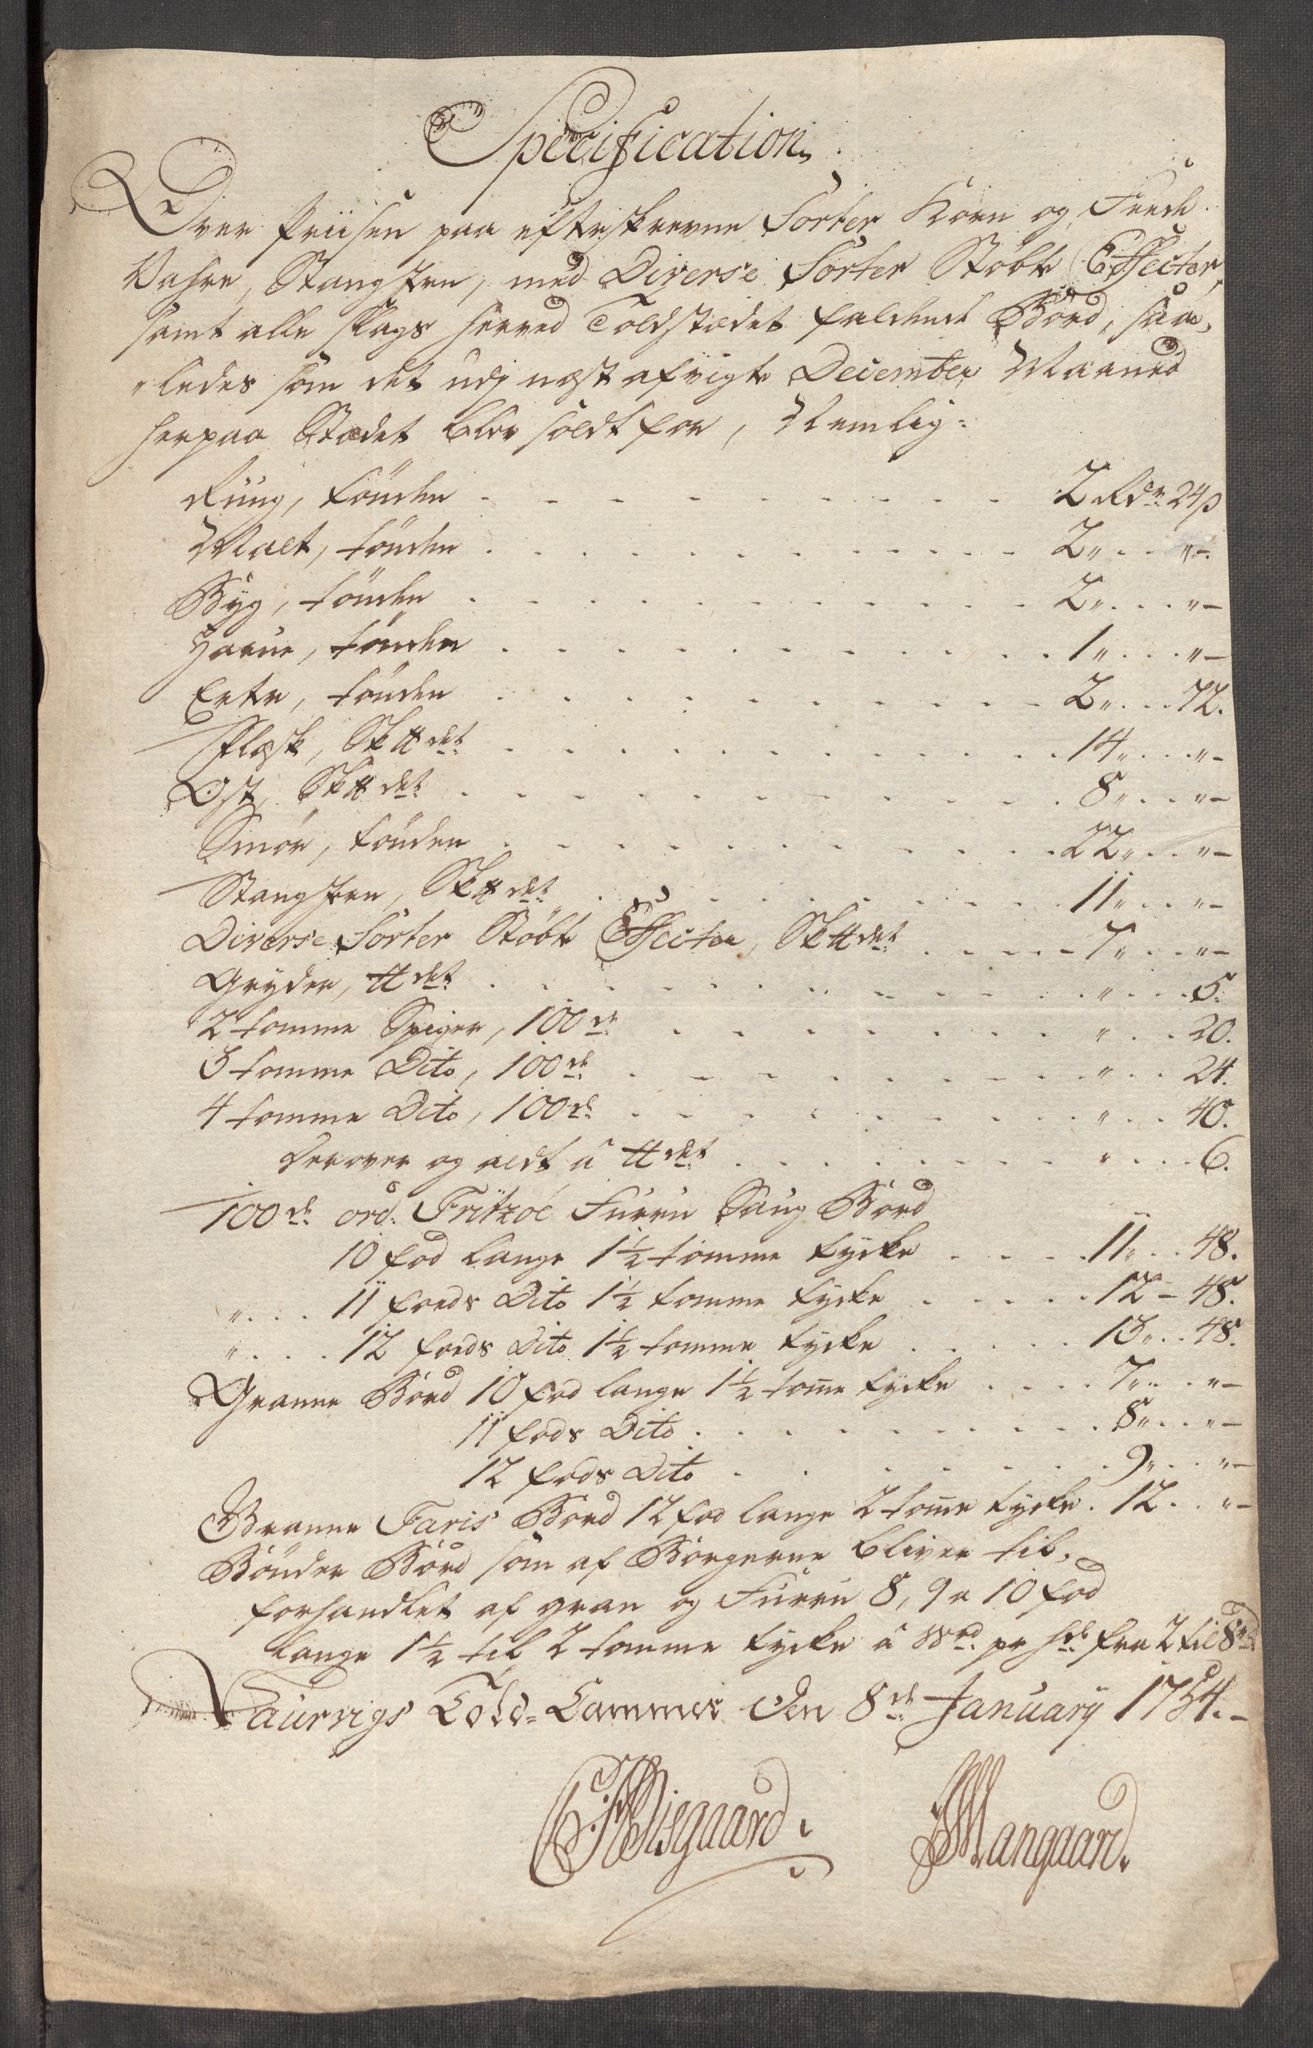 Specification
Over Priisen paa efterskrevne Sorter Korn og Feede
Vahre, Stangjern, med Diverse Sorter Støbte Effecter,
samt alle slags herved Toldstædet faldende Bord, saa„
„ledes som det udj næst afvigte December Maaned
herpaa Stædet blev soldt for, Nemlig:
Rüug, tönden - - - 2 Rdr. 24ß
Malt, tönden - - - 2 „ - „ -
Byg, tönden - - - 2 „ - „ -
Haure, tönden - - - 1 „ - „ -
Erter, tönden - - - 2 „ - 72.
Flæsk, Sk℔det - - - 14 „ - „ -
Ost, Sk℔det - - - 8 „ - „ -
Smör, tönden - - - 22 „ - „ -
Stangjern, Sk℔det - - - 11 „ - „ -
Diverse Sorter Støbte Effecter, Sk℔det - - - 7 „ - „ -
Gryder, ℔det - - - „ - 5.
2 tomme Spiger, 100de - - - „ - 20.
3 tomme Dito, 100de - - - „ - 24.
4 tomme Dito, 100de - - - „ - 40.
Derover og aldt á ℔det - - - „ - 6.
100de ord. Fritzöe Furru Saug Bord
10 fod lange 1½ tomme tycke - - - 11 „ - 48.
„ - - 11 fods Dito 1½ tomme tycke - - - 12 - 48.
„ - - 12 fods Dito 1½ tomme tycke - - - 13 „ - 48.
Granne Bord 10 fod lange 1½ tome tycke - - - 7 „ - „ -
11 fods Dito - - - 8 „ - „ -
12 fods Dito - - - 9 „ - „ -
Granne Faris Bord 12 fod lange 2 tome tycke. 12. „ -
Bönder Bord som af Borgerne bliver til„
forhandlet af gran og Furru 8, 9 a 10 fod
lange 1½ til 2 tomme tycke á pr fra 2 til 8
Laurvigs Told-Cammer den 8de January 1754.-
Wisgaard.
Mangaard.